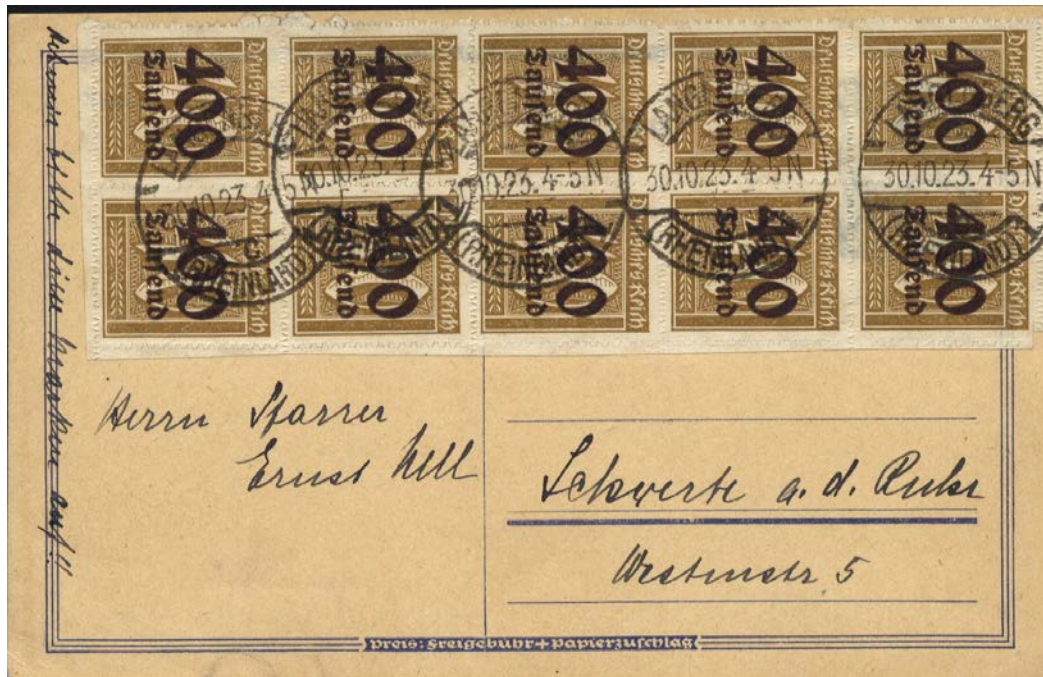 400 Tausend Deutsches Reich
400 Tausend Deutsches Reich
400 Tausend Deutsches Reich
400 Tausend Deutsches Reich
400 Tausend Deutsches Reich
400 Tausend Deutsches Reich
400 Tausend Deutsches Reich
400 Tausend Deutsches Reich
400 Tausend Deutsches Reich
400 Tausend Deutsches Reich
30.10.23.4-5 N
(RHEINLAND)
30.10.23.4-5 N
(RHEINLAND)
30.10.23.4-5 N
(RHEINLAND)
30.10.23.4-5 N
(RHEINLAND)
30.10.23.4-5 N
(RHEINLAND)
bitte Marken auf!!
Herrn Pfarrer
Ernst
Schwerte a. d. Ruhr
5
Preis: Freigebühr + Papierzuschlag